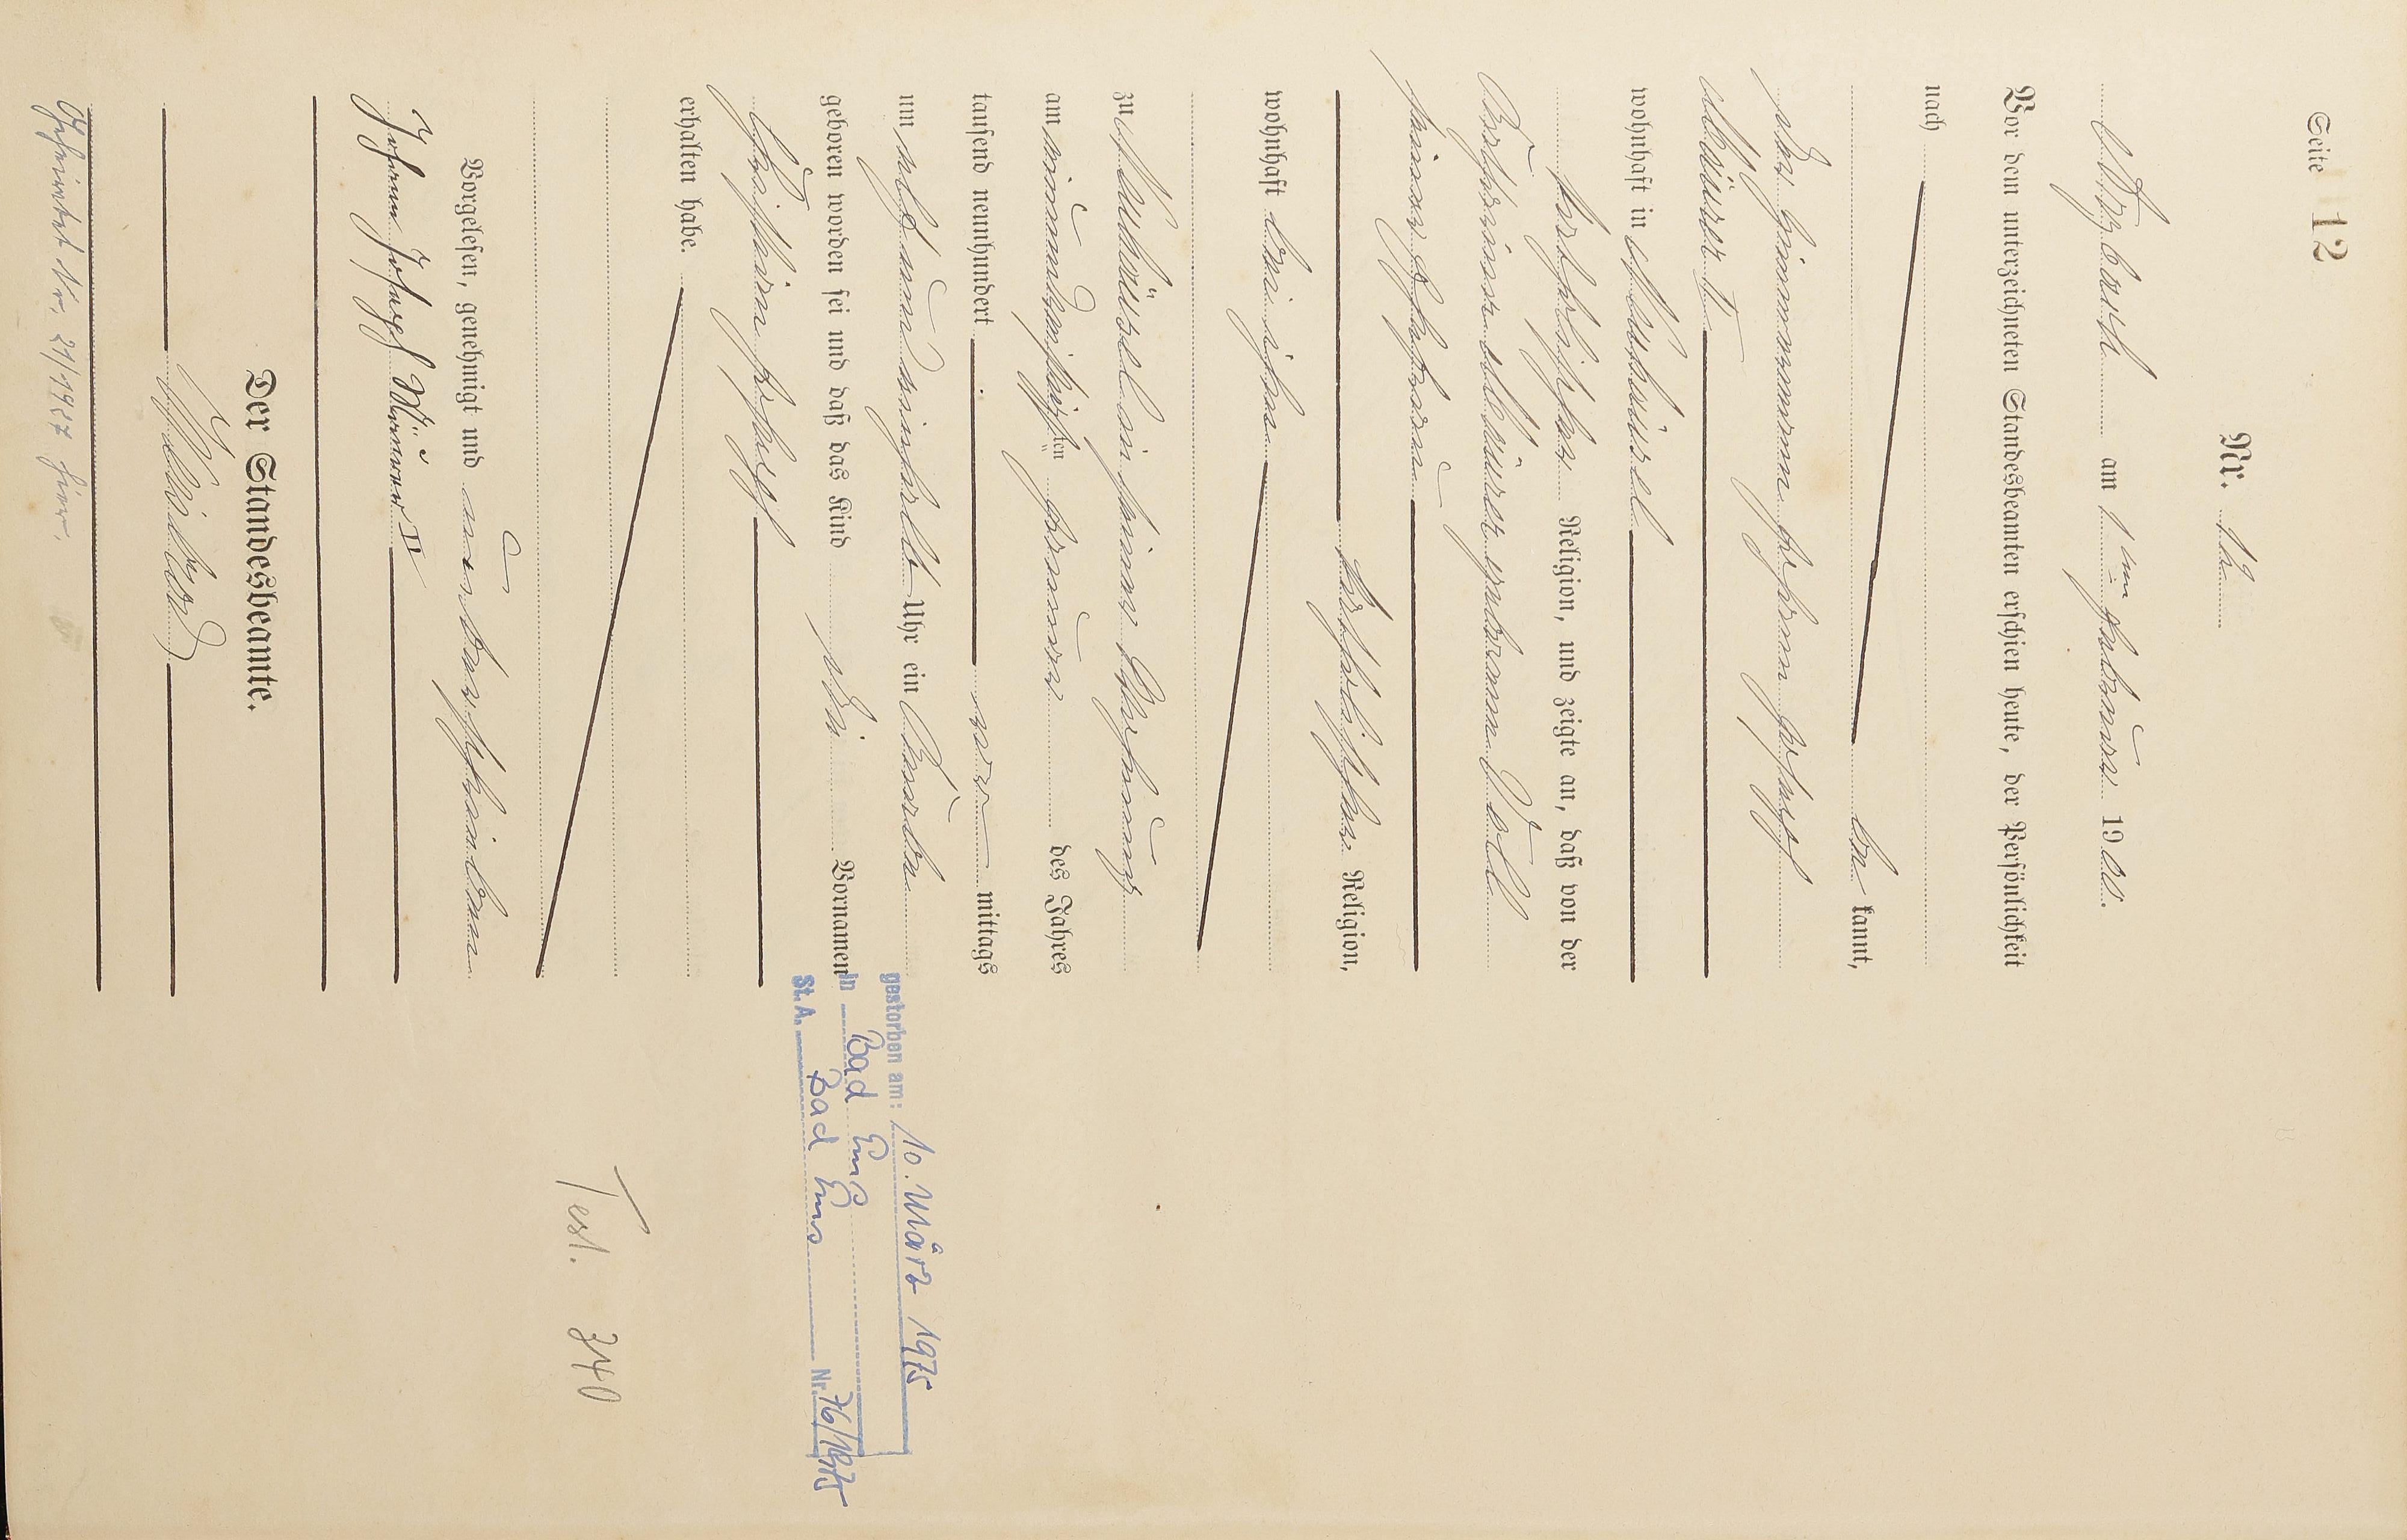 Seite 12
Nr. 12.
am 1ten Februar 1900.
Vor dem unterzeichneten Standesbeamten erschien heute, der Persönlichkeit
nach
be kannt,
der Zimmermann Johann Joseph
Mäurer II
wohnhaft in Neuhäusel
katholischer Religion, und zeigte an, daß von der
Katharina Mäurer geborenen Voll
seiner Ehefrau
katholischer Religion,
wohnhaft bei ihm
zu Neuhäusel in seiner Wohnung
am einunddreißigsten Januar des Jahres
tausend neunhundert vor mittags
um elf und einhalb Uhr ein Knabe
geboren worden sei und daß das Kind die Vornamen
Christian Joseph
erhalten habe.
Vorgelesen, genehmigt und unterschrieben
Johann Joseph Mäurer II
Der Standesbeamte.
Geheiratet Nr. 21/1927 hier.
gestorben am: 10. März 1975
in Bad Ems
St. A. Bad Ems Nr. 76/1975
Test. 340